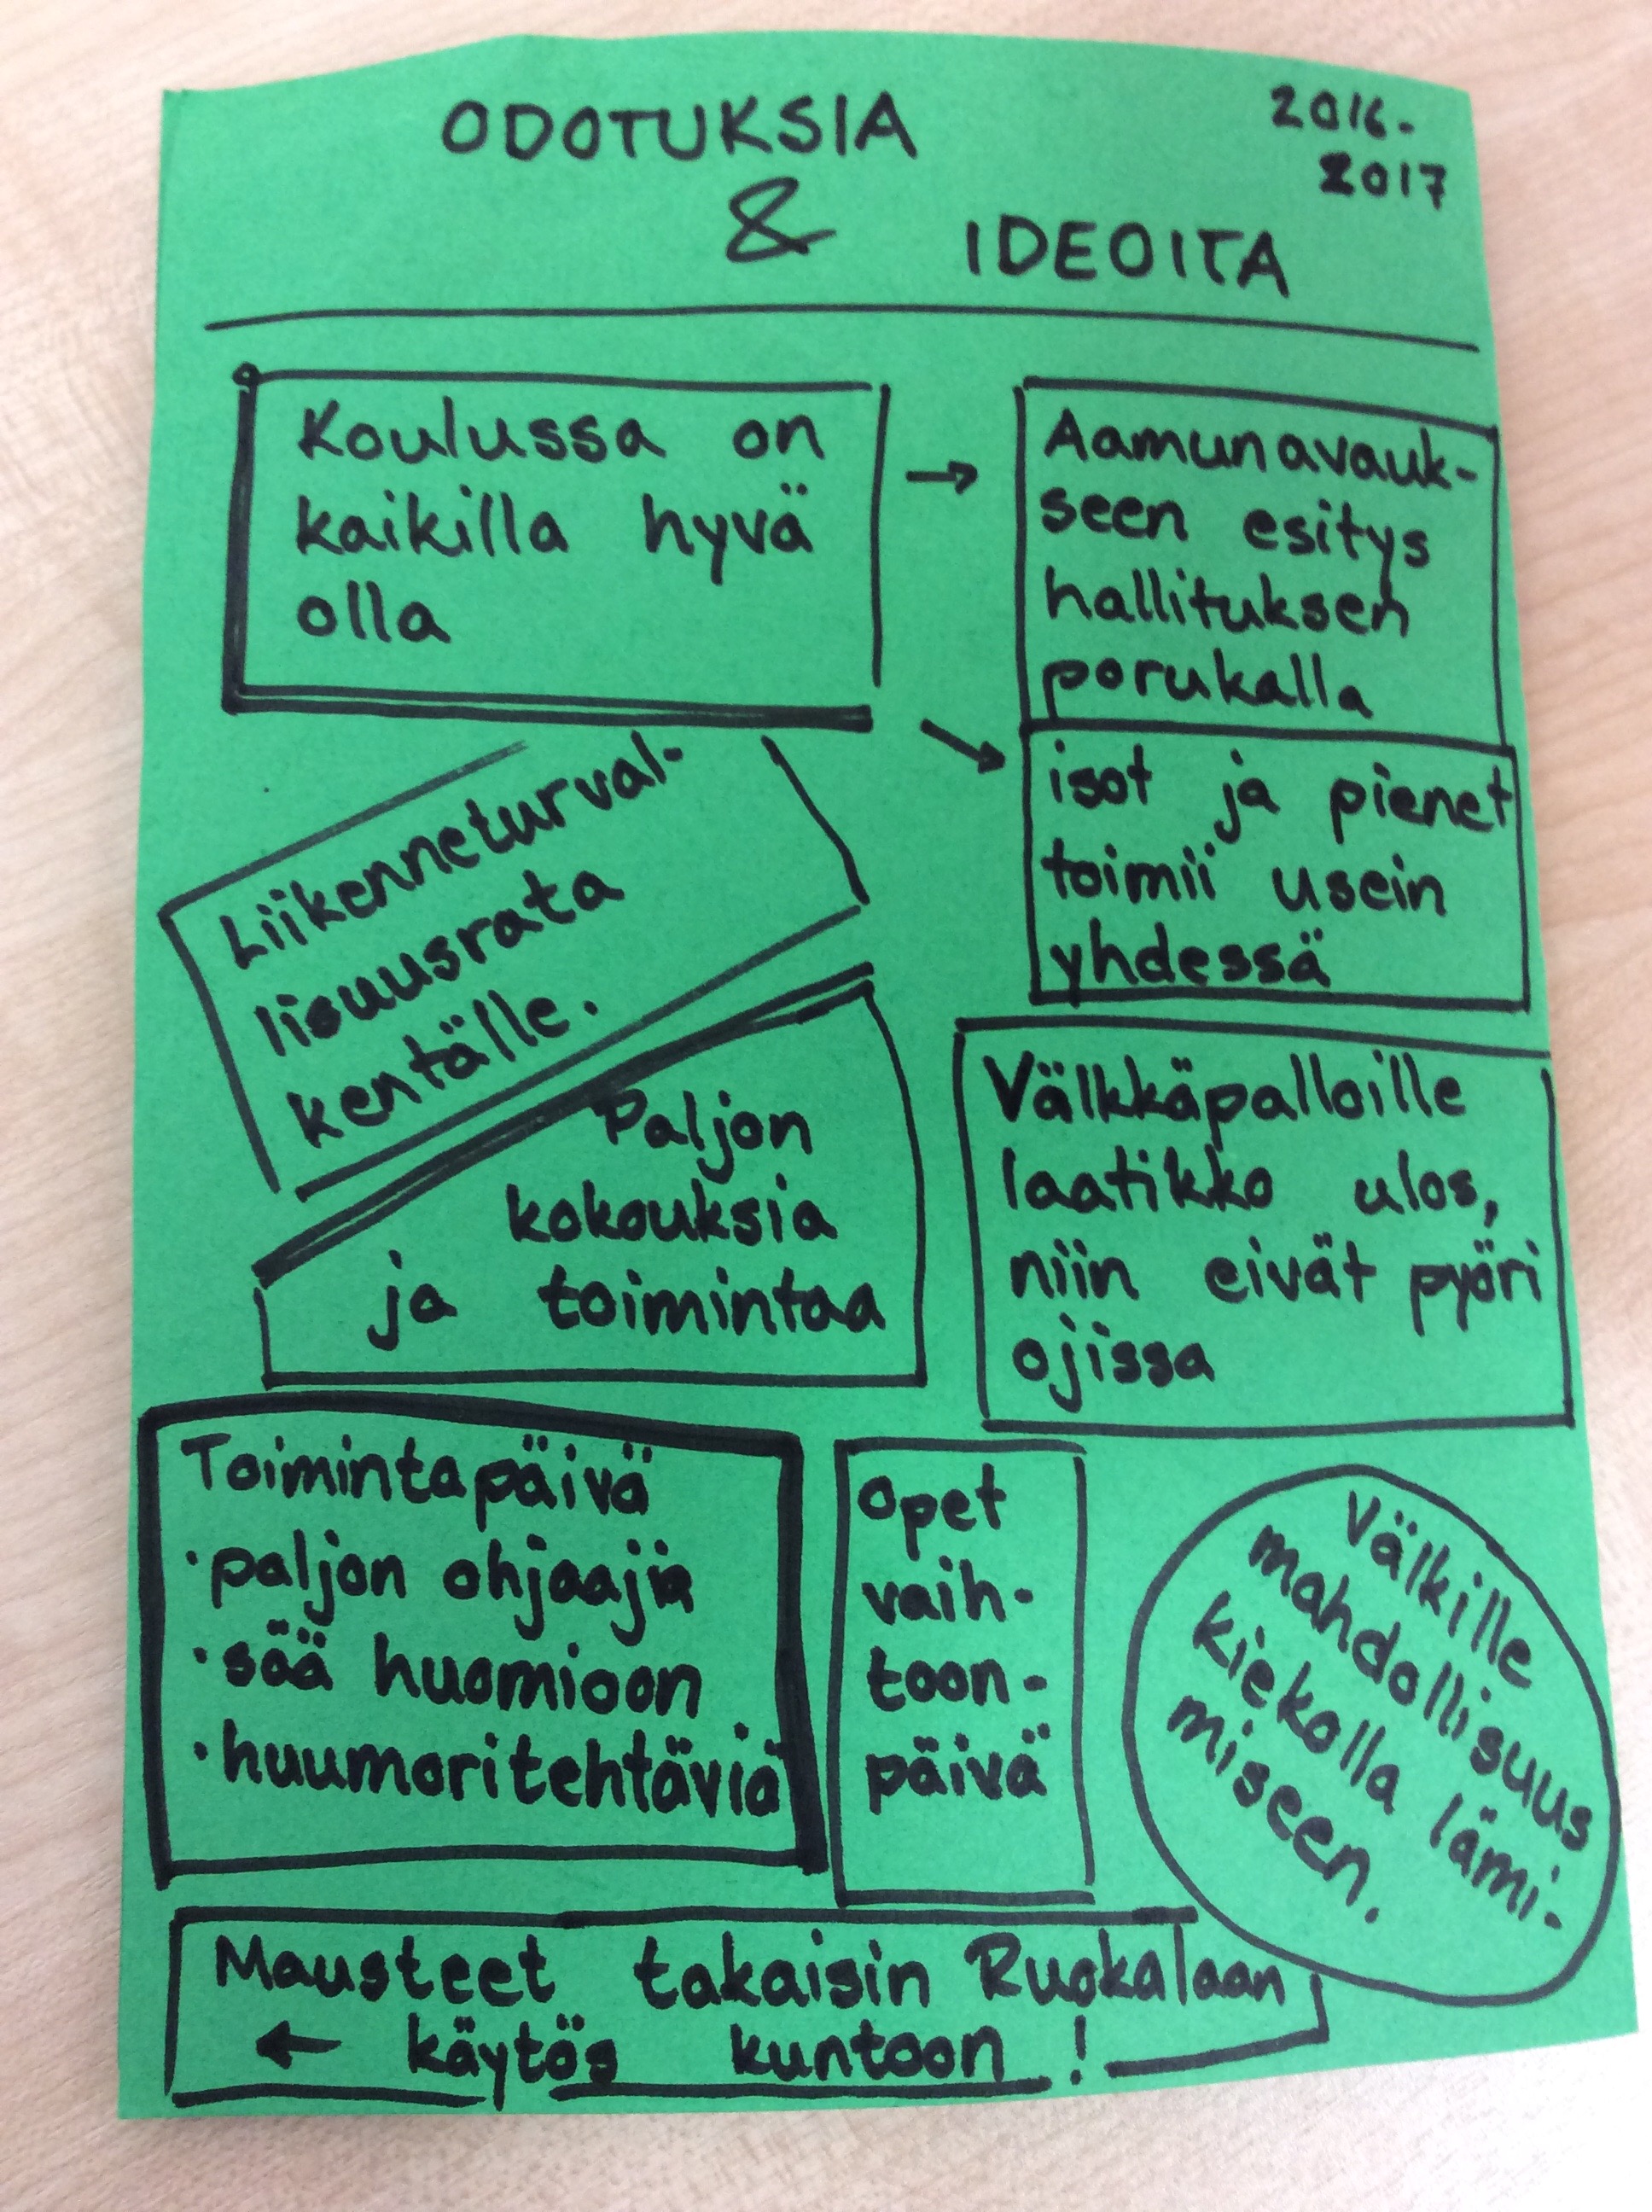 ODOTUKSIA
&
IDEOITA
2016-
2017
Koulussa on
kaikilla hyvä
olla
→
Aamunavauk-
seen esitys
hallituksen
porukalla
→
isot ja pienet
toimii usein
yhdessä
Liikenneturval-
lisuusrata
kentälle.
Paljon
kokouksia
ja toimintaa
Välkkäpalloille
laatikko ulos,
niin eivät pyöri
ojissa
Toimintapäivä
·paljon ohjaajia
·sää huomioon
·huumoritehtäviä
Opet
vaih-
toon-
päivä
Välkille
mahdollisuus
kiekolla lämi-
miseen.
Mausteet takaisin Ruokalaan
← käytös kuntoon !